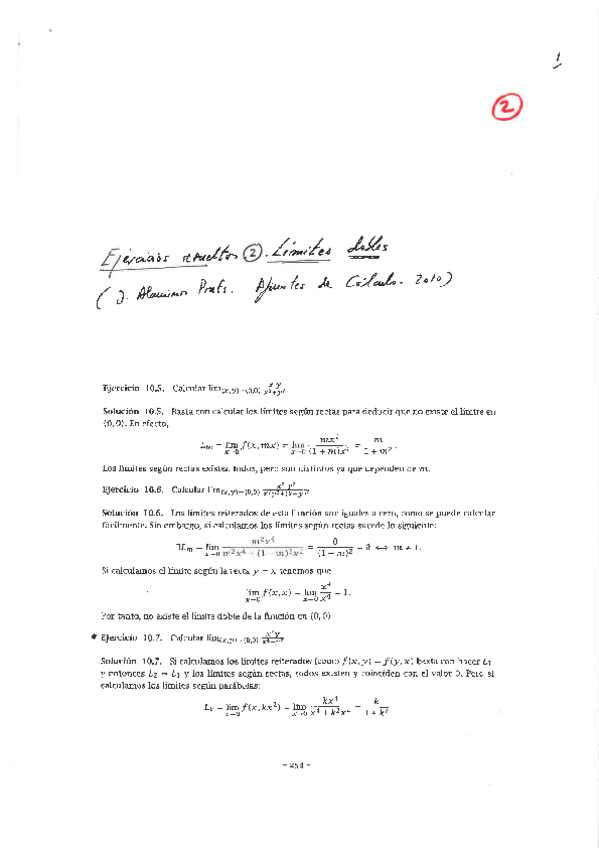 1
2
Ejercicios resueltos ②. Límites dobles
(J. Alaminos Prats. Apuntes de Cálculo. 2010)
Ejercicio 10.5. Calcular lim(x,y)→(0,0) x y / x²+y²
Solución 10.5. Basta con calcular los límites según rectas para deducir que no existe el límite en
(0,0). En efecto,
Lm = lim x→0 f(x, mx) = lim x→0 mx² / (1 + m²)x² = m / 1 + m² .
Los límites según rectas existen todos, pero son distintos ya que dependen de m.
Ejercicio 10.6. Calcular lim(x,y)→(0,0) x² y² / x²y²+(x−y)²
Solución 10.6. Los límites reiterados de esta función son iguales a cero, como se puede calcular
fácilmente. Sin embargo, si calculamos los límites según rectas sucede lo siguiente:
lim x→0 m²x⁴ / m²x⁴ + (1 − m)²x² = 0 / (1 − m)² = 0 ⟺ m ≠ 1.
Si calculamos el límite según la recta y = x tenemos que
lim x→0 f(x, x) = lim x→0 x⁴ / x⁴ = 1.
Por tanto, no existe el límite doble de la función en (0,0)
* Ejercicio 10.7. Calcular lim(x,y)→(0,0)
Solución 10.7. Si calculamos los límites reiterados (como f(x, y) = f(y, x) basta con hacer L₁
y entonces L₂ = L₁ y los límites según rectas, todos existen y coinciden con el valor 0. Pero si
calculamos los límites según parábolas:
Lk = lim x→0 f(x, kx²) = lim x→0 kx⁴ / x⁴ + k²x⁴ = k / 1 + k²
– 254 –